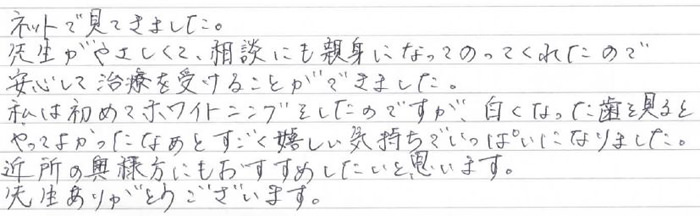 ネットで見てきました。
先生がやさしくて、相談にも親身になってのってくれたので
安心して治療を受けることができました。
私は初めてホワイトニングをしたのですが、白くなった歯を見ると
やってよかったなあとすごく嬉しい気持ちでいっぱいになりました。
近所の奥様方にもおすすめしたいと思います。
先生ありがとうございます。